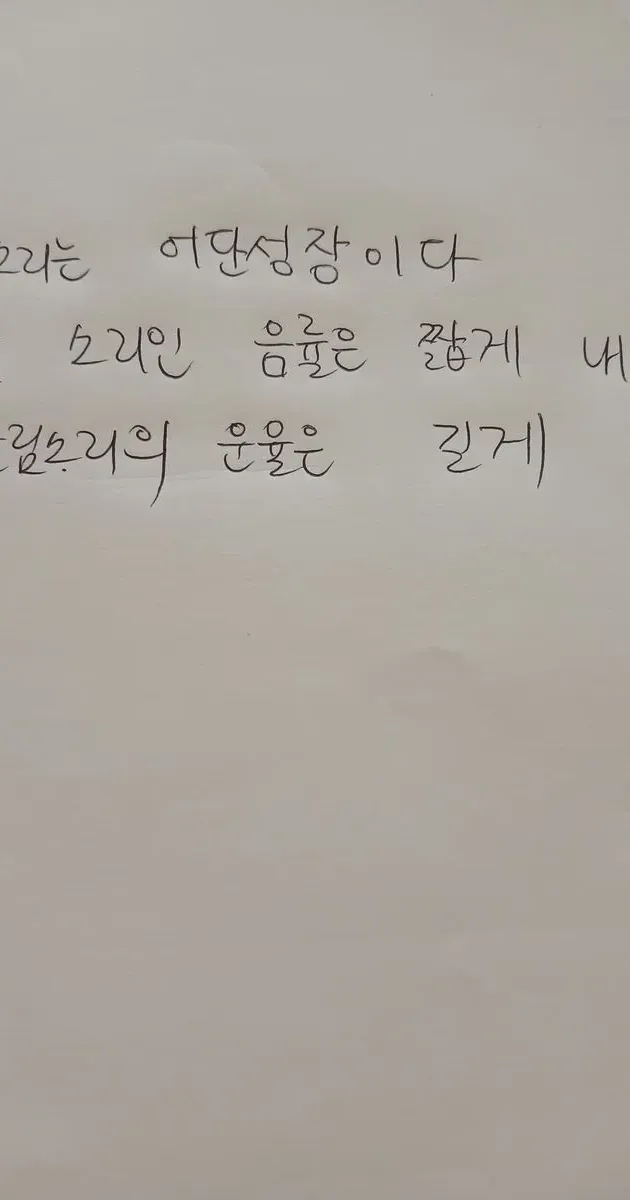 소리는 어단성장이다
소리인 음률은 짧게 내
림소리의 운율은 길게